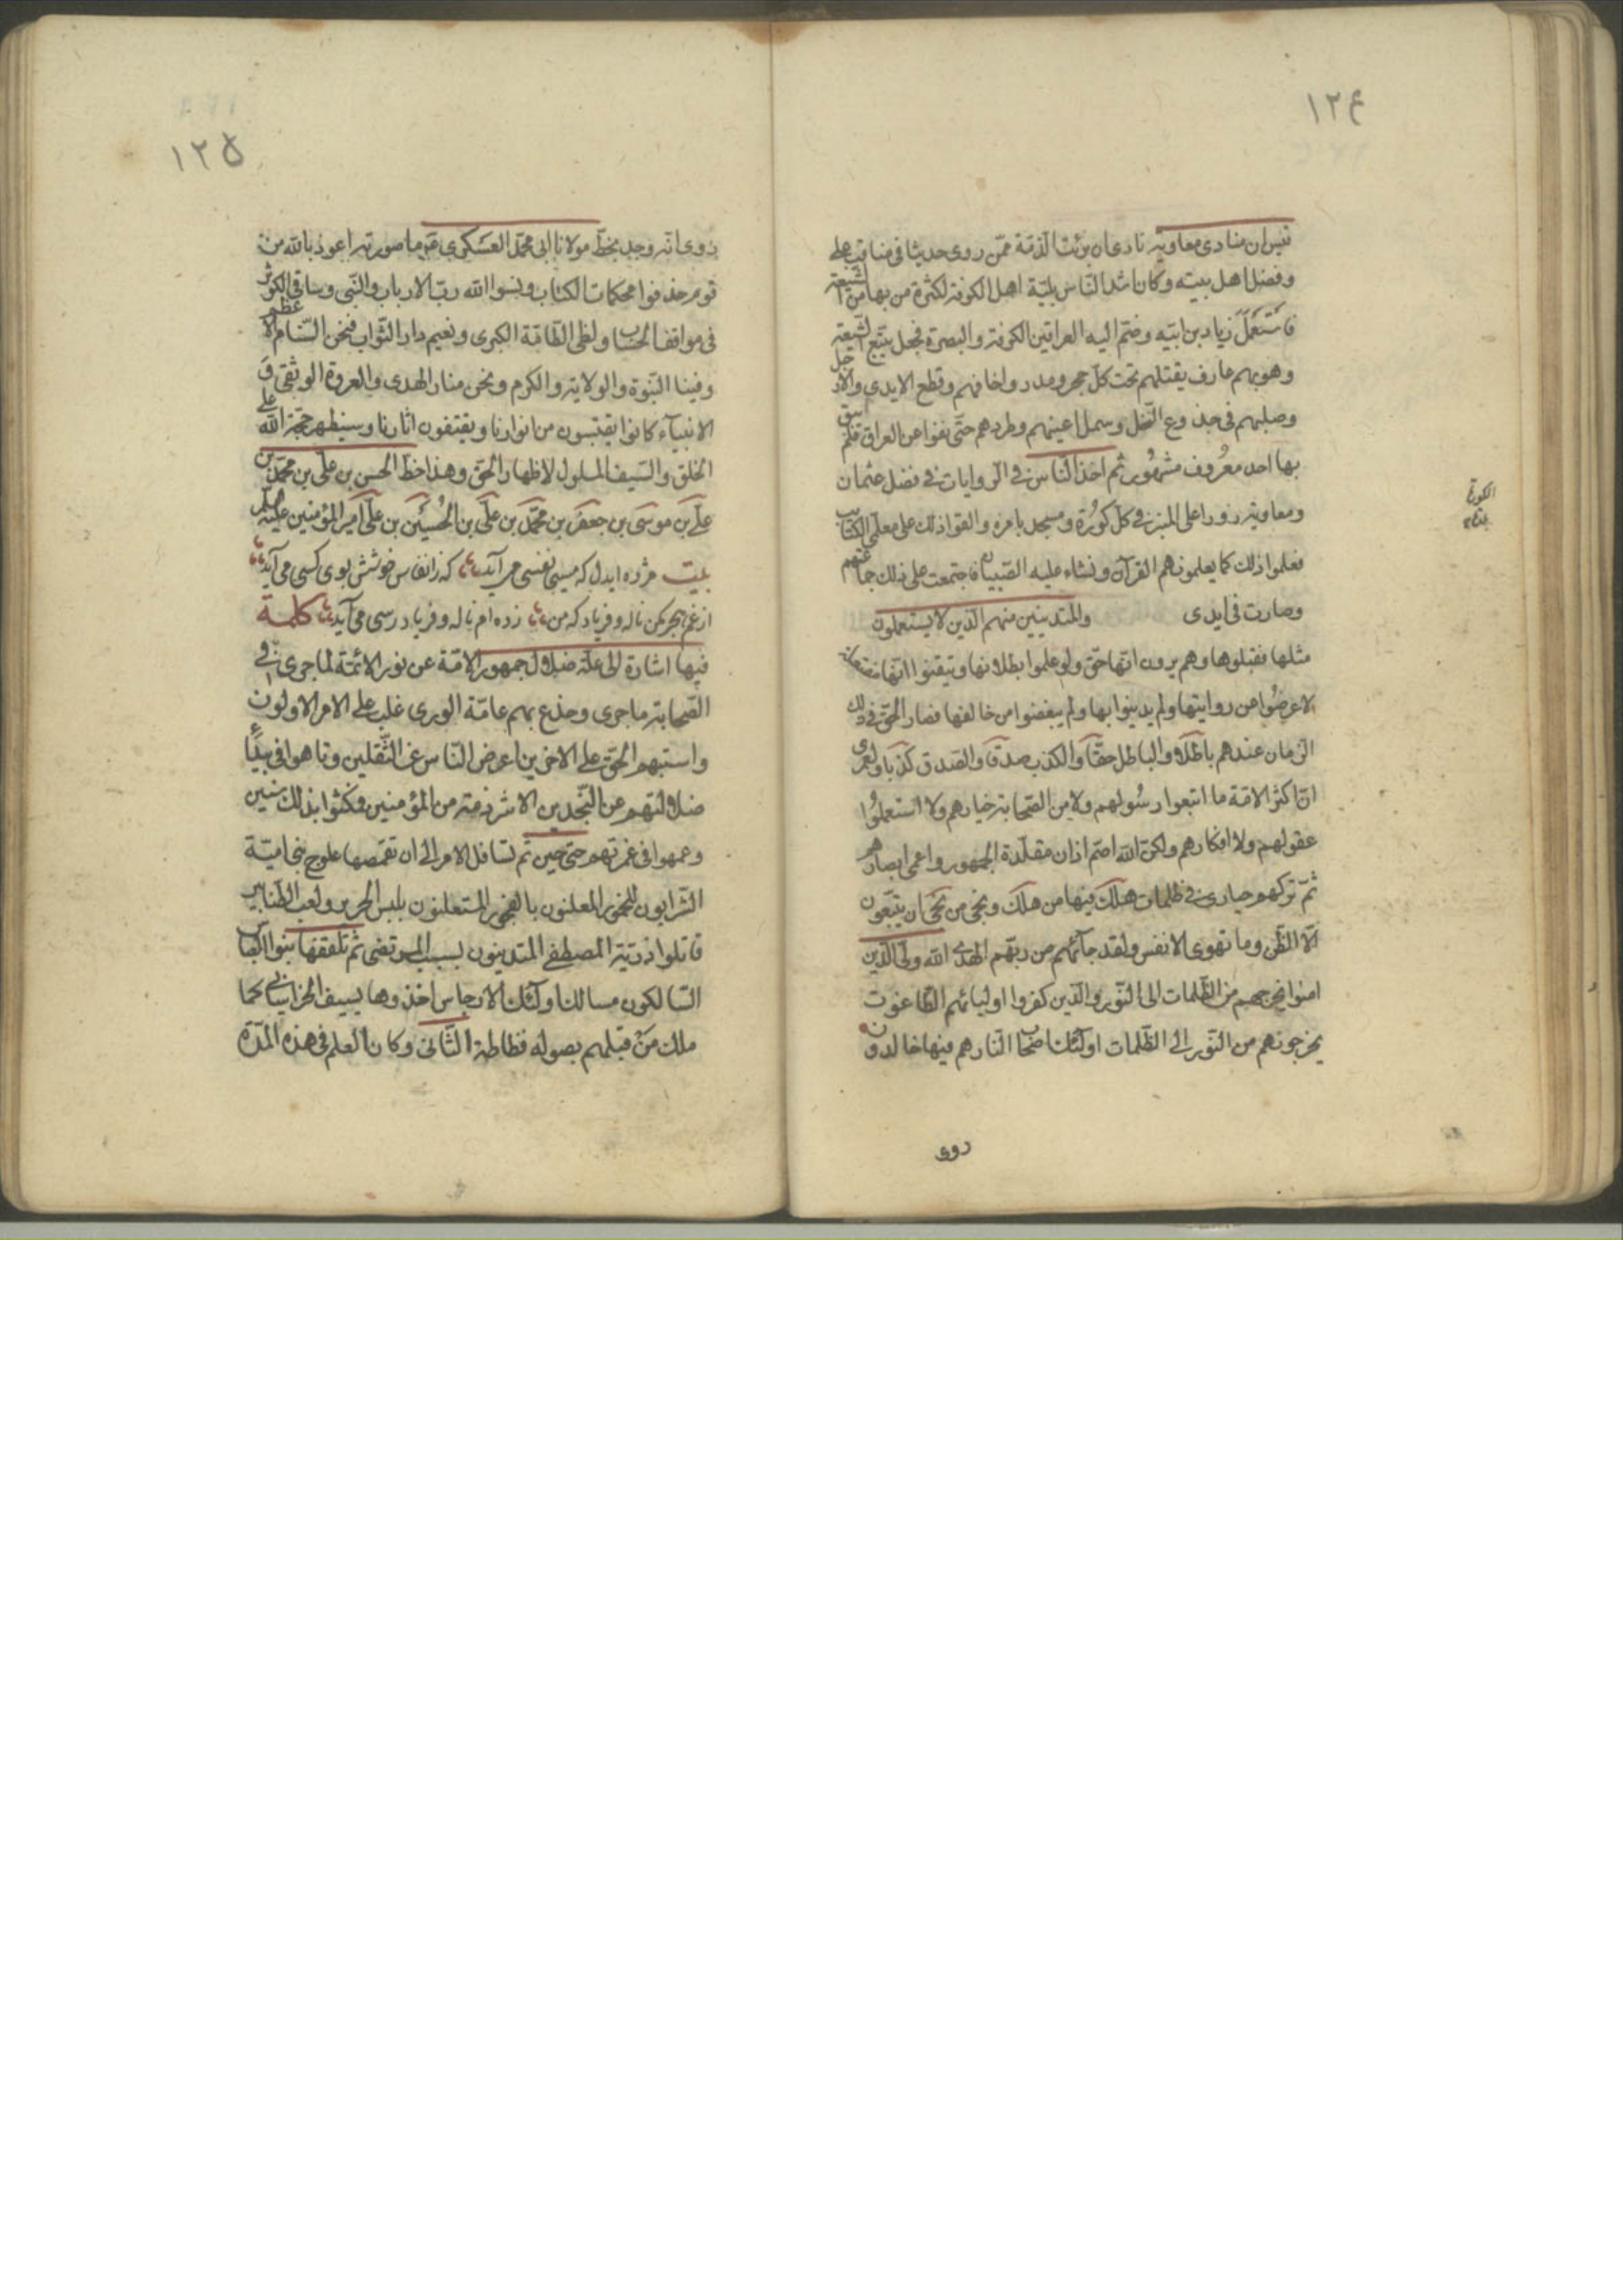 ١٢٤
قيس ان منادى معاوية نادى ان برئت الذمة ممن روى حديثا فى مناقب على
وفضل اهل بيته وكان اشد الناس بلية اهل الكوفة لكثرة من بها من الشيعة
فاستعمل زياد بن ابيه وضم اليه العراقين الكوفة والبصرة فجعل يتتبع الشيعة
وهو بهم عارف يقتلهم تحت كل حجر ومدر واخافهم وقطع الايدى والارجل
وصلبهم فى جذوع النخل وسمل اعينهم وطردهم حتى نفوا عن العراق فلم يبق
بها احد معروف مشهور ثم اخذ الناس فى الروايات فى فضل عثمان
ومعاوية زورا على المنبر فى كل كورة ومسجد بامره والقوا ذلك على معلمى الكتاتيب
الكورة
فعلموا ذلك كما يعلمونهم القرآن ونشاء عليه الصبيان فاجتمعت على ذلك جماعتهم
وصارت فى ايدى والمتدينين منهم الذين لا يستحلون
مثلها فقبلوها وهم يرون انها حق ولو علموا بطلانها وتيقنوا انها مفتعلة
لاعرضوا عن روايتها ولم يدينوا بها ولم يبغضوا من خالفها فصار الحق فى ذلك
الزمان عندهم باطلا والباطل حقا والكذب صدقا والصدق كذبا ولعمرى
ان اكثر الامة ما اتبعوا رسولهم ولا من الصحابة خيارهم ولا استعملوا
عقولهم ولا افكارهم ولكن الله اصم اذان مقلدة الجمهور واعمى ابصارهم
ثم تركهم حيارى فى ظلمات هلك فيها من هلك ونجى من نجى ان يتبعون
الا الظن وما تهوى الانفس ولقد جائهم من ربهم الهدى الله ولى الذين
امنوا يخرجهم من الظلمات الى النور والذين كفروا اوليائهم الطاغوت
يخرجونهم من النور الى الظلمات اولئك اصحاب النار هم فيها خالدون
روى
١٢٥
روى انه وجد بخط مولانا ابى محمد العسكرى ع ما صورته اعوذ بالله من
قوم حذفوا محكمات الكتاب ونسوا الله رب الارباب والنبى وساقى الكوثر
فى مواقف الحساب ولظى الطامة الكبرى ونعيم دار الثواب فنحن السنام الاعظم
وفينا النبوة والولاية والكرم ونحن منار الهدى والعروة الوثقى و
الانبياء كانوا يقتبسون من انوارنا ويقتفون اثارنا وسيظهر حجة الله على
الخلق والسيف المسلول لاظهار الحق وهذا خط الحسن بن على بن محمد بن
على بن موسى بن جعفر بن محمد بن على بن الحسين بن على امير المؤمنين عليهم
بيت مژده ايدل كه مسيحى نفسى مى آيد كه ز انفاس خوشش بوى كسى مى آيد
از غم هجر مكن ناله وفرياد كه من زده ام فالى وفرياد رسى مى آيد كلمة
فيها اشارة الى علة ضلال جمهور الامة عن نور الائمة لما جرى فى
الصحابة ما جرى وخدع بهم عامة الورى غلب على الامر الاولون
واستبهم الحق على الاخرين اعرض الناس عن الثقلين وتاهوا فى بيداء
ضلالتهم عن النجدين الا شرذمة من المؤمنين فمكثوا بذلك سنين
وعمهوا فى غمرتهم حتى حين ثم تسافل الامر الى ان تقمصها علوج بنى امية
الشرابون للخمور المعلنون بالفجور المستعلنون بلبس الحرير ولعب الطنابير
قاتلوا ذرية المصطفى المتدينون بسب المرتضى ثم تلقفها بنوا العباس
السالكون مسالك اولئك الارجاس اخذوها بسيف الخراسانى كما
ملك من قبلهم بصولة فظاظة الثانى وكان العلم فى هذه المدة